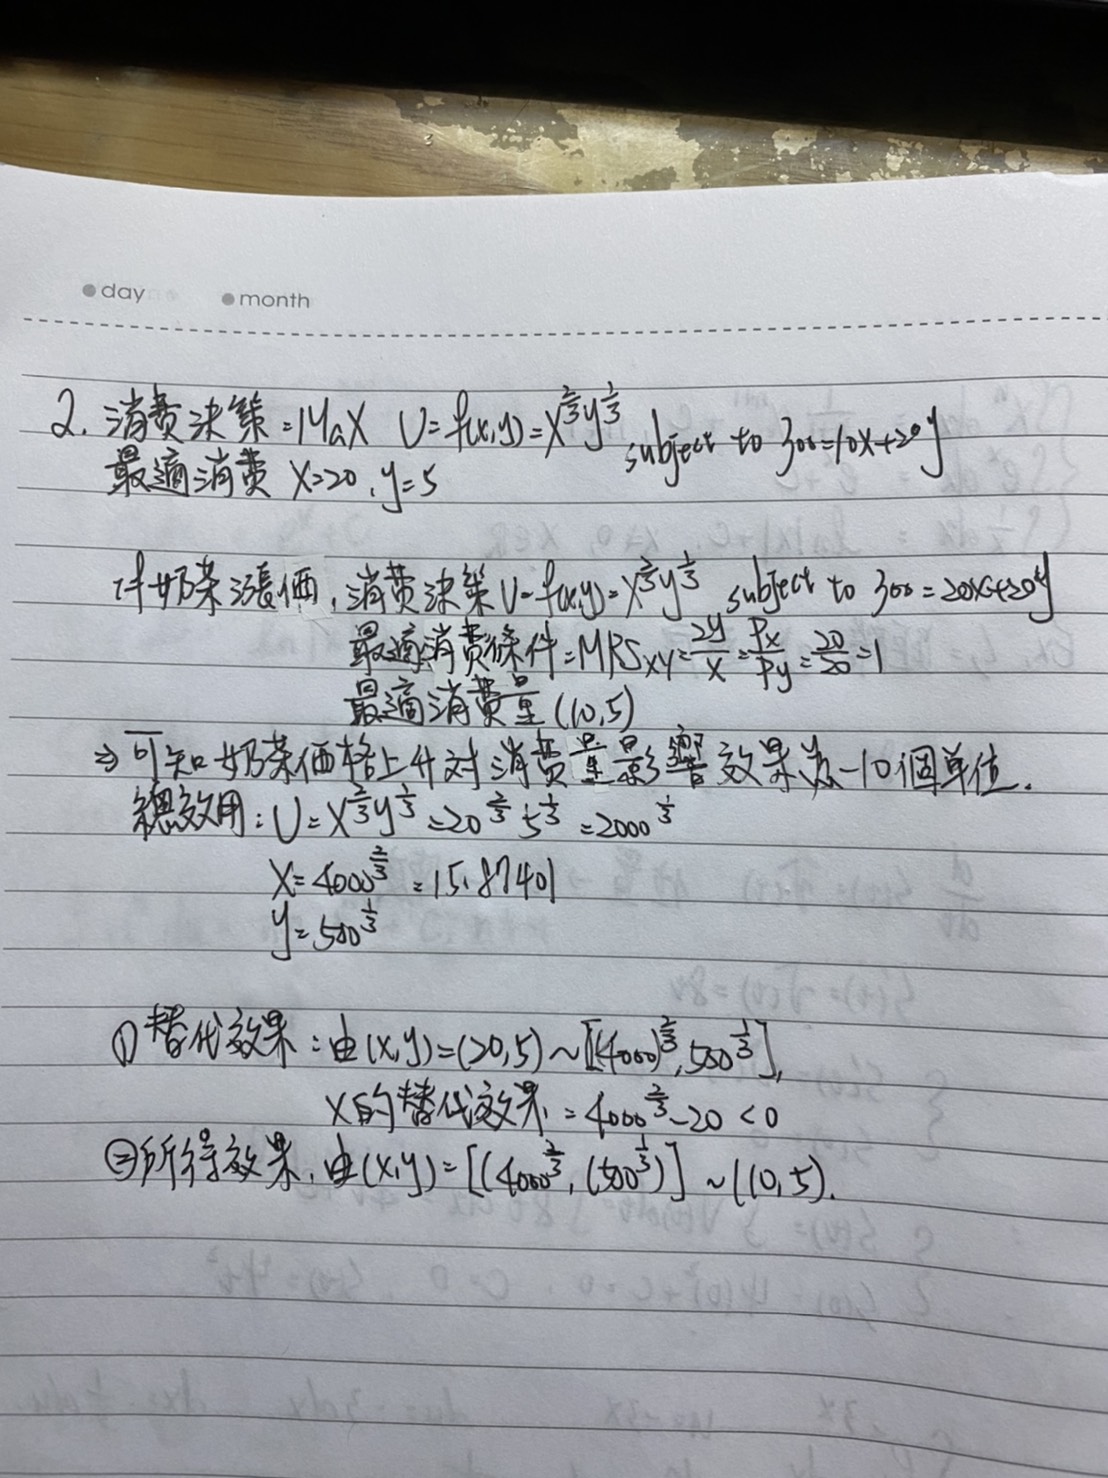 day month
2. 消費決策=Max U=f(x,y)=x^{2/3}y^{1/3} subject to 300=10x+20y
最適消費 x=20, y=5
奶茶漲価, 消費決策 U=f(x,y)=x^{2/3}y^{1/3} subject to 300=20x+20y
最適消費條件=MRSxy=\frac{2y}{x}=\frac{Px}{Py}=\frac{20}{20}=1
最適消費量(10,5)
⇒可知奶茶価格上升対消費量影響效果為-10個単位.
總效用: U=x^{2/3}y^{1/3}=20^{2/3}5^{1/3}=2000^{1/3}
x=4000^{2/3}=15.87401
y=500^{1/3}
①替代效果:由(x,y)=(20,5)~[(4000)^{2/3},500^{1/3}],
x的替代效果=4000^{2/3}-20<0
②所得效果,由(x,y)=[(4000^{2/3},(500^{1/3})]~(10,5).